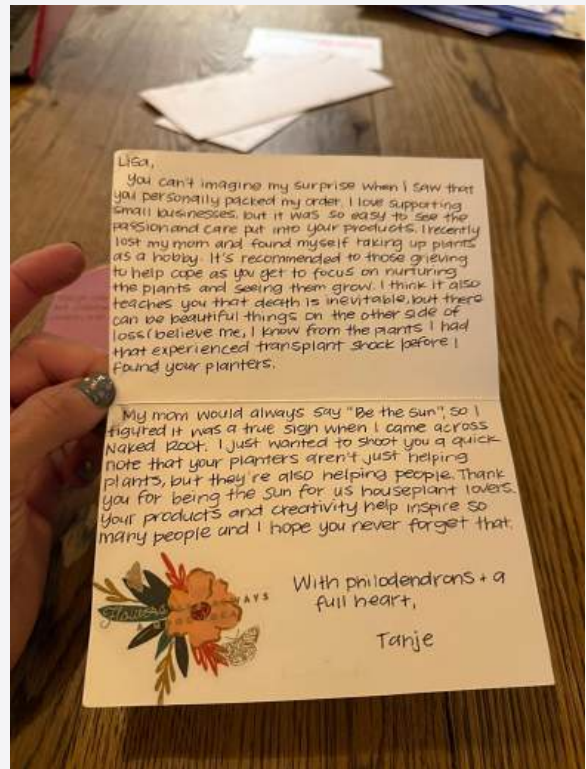 Lisa,
You can't imagine my surprise when I saw that
you personally packed my order. I love supporting
small businesses, but it was so easy to see the
passion and care put into your products. I recently
lost my mom and found myself taking up plants
as a hobby. It's recommended to those grieving
to help cope as you get to focus on nurturing
the plants and seeing them grow. I think it also
teaches you that death is inevitable, but there
can be beautiful things on the other side of
loss (believe me, I know from the plants I had
that experienced transplant shock before I
found your planters.
My mom would always say "Be the Sun", so I
figured it was a true sign when I came across
Naked Root. I just wanted to shoot you a quick
note that your planters aren't just helping
plants, but they're also helping people. Thank
you for being the sun for us houseplant lovers.
Your products and creativity help inspire so
many people and I hope you never forget that.
Flowers
With philodendrons + a
full heart,
Tanje